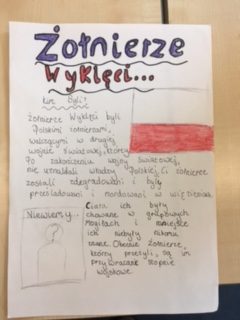 Żołnierze
Wyklęci...
Kim byli?
Żołnierze Wyklęci byli
Polskimi żołnierzami,
walczącymi w drugiej
wojnie światowej, którzy
Po zakończeniu wojny światowej,
nie uznaldali władzy Polskiej. Ci żołnierze
zostali zdegradowani i byli
prześladowani i mordowani w więzieniach.
Ciała ich były
chowane w grupowych
mogiłach i miejsce
ich niebyły nikomu
znane. Obecnie żołnierze,
którzy przeżyli, są im
przywracane stopnie
wojskowe.
Niewiemy...
?